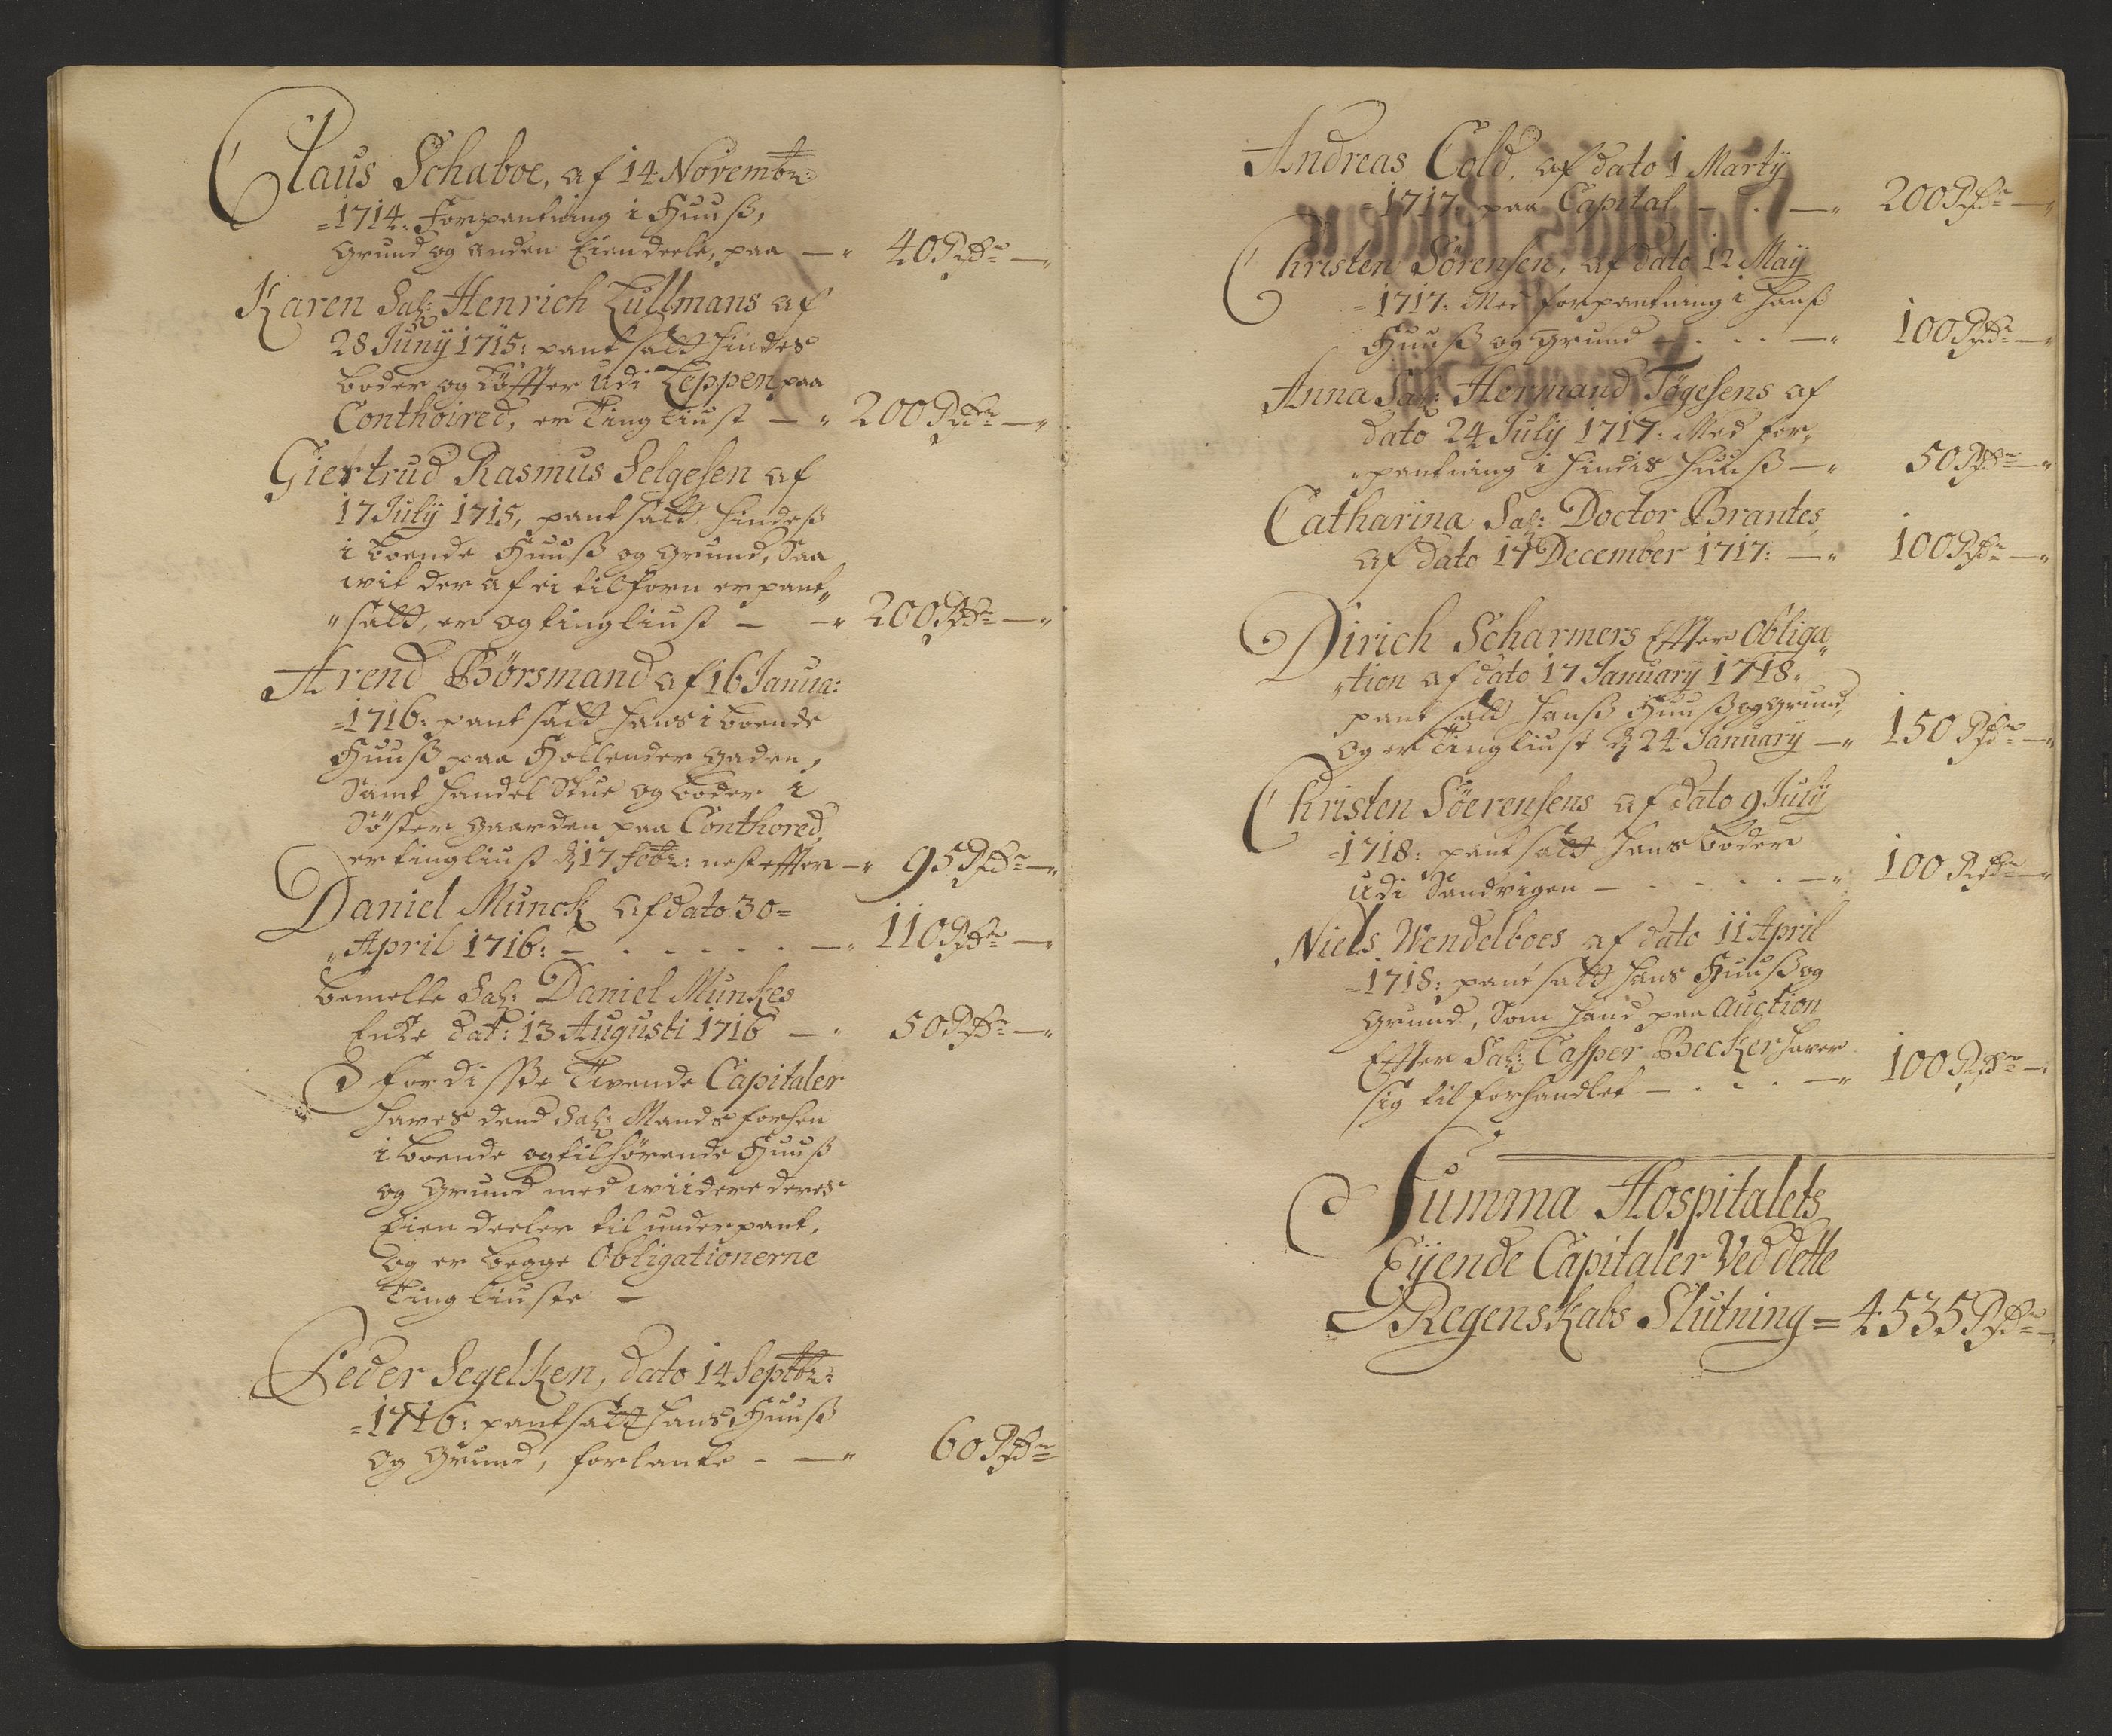 Claus Schaboe, af 14 Novembr:
=1714. Forpantning i Huuß,
Grund og anden Eiendeele, paa — 40 Rdr —
Karen Sal: Henrich Lullmans af
28 Juny 1715: pant satt hindes
boder og löffter udi Leppen paa
Conthoired, er Tingliust — 200 Rdr —
Giertrud Rasmus Selgesen af
17 July 1715, pantsatt hindeß
iboende Huuß og Grund, Saa
wit der af ei tilforn er pant„
„satt, er og tingliust — 200 Rdr —
Arend Börsmand af 16 Janua:
=1716: pantsatt hans iboende
Huuß paa Hollender gaden,
Samt handel Stue og boder i
Söster gaarden paa Conthored,
er tingliust d 17 Febr: nest effter — 95 Rdr —
Daniel Munck af dato 30=
„April 1716: — 110 Rdr —
bemelte Sal: Daniel Munkes
Enke dat: 13 Augusti 1716 — 50 Rdr —
For disse Tvende Capitaler
haves dend Sal: Mands forhen
iboende og tilhörende Huuß
og Grund med wiidere deres
Eiendeeler til underpant,
og er begge Obligationerne
Tingliuste —
Peder Segelken, dato 14 Septbr:
=1716: pantsatt hans Huuß
og Grund, forlante — 60 Rdr
Andreas Cold, af dato 1 Marty
=1717: paa Capital — 200 Rdr —
Christen Sörensen, af dato 12 Maij
=1717: Med forpantning i hans
Huuß og Grund — 100 Rdr —
Anna Sal: Hermand Tögesens af
dato 24 July 1717: Med for„
„pantning i hindis huuß — 50 Rdr —
Catharina Sal: Doctor Brantes
af dato 17 December 1717: — 100 Rdr —
Dirich Scharmers Effter Obliga„
„tion af dato 17 January 1718.
pantsatt hanß Huuß og grund,
og er Tingliust d 24 January — 150 Rdr —
Christen Söerensens af dato 9 July
=1718: pantsatt hans boder
udi Sandvigen — 100 Rdr —
Niels Wendelboes af dato 11 April
=1718: pantsatt hans Huuß og
Grund, Som hand paa Auction
Effter Sal: Casper Becker haver
sig tilforhandlet — 100 Rdr —
Summa Hospitalets
Eijende Capitaler Ved dette
Regenskabs Slutning = 4535 Rdr —